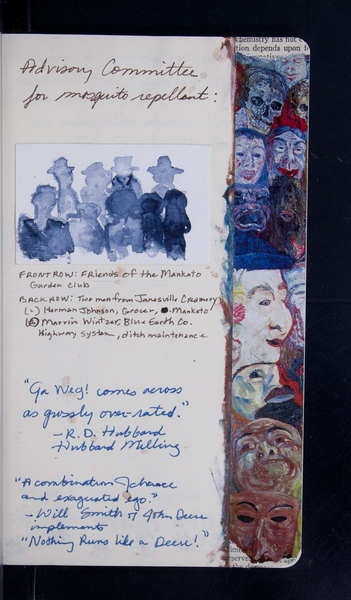 chemistry has not
tion depends upon
Advisory Committee
for mosquito repellant:
FRONT ROW: Friends of the Mankato
Garden Club
BACK ROW: Two men from Janesville Creamery
(L) Herman Johnson, Grocer, Mankato
(R) Marvin Wintzer, Blue Earth Co.
Highway System, ditch maintenance
"Ga Weg! comes across
as grossly over-rated."
- R.D. Hubbard
Hubbard Milling
"A combination of chance
and exaguated ego."
- Will Smith of John Deere
implements
"Nothing Runs like a Deere!"